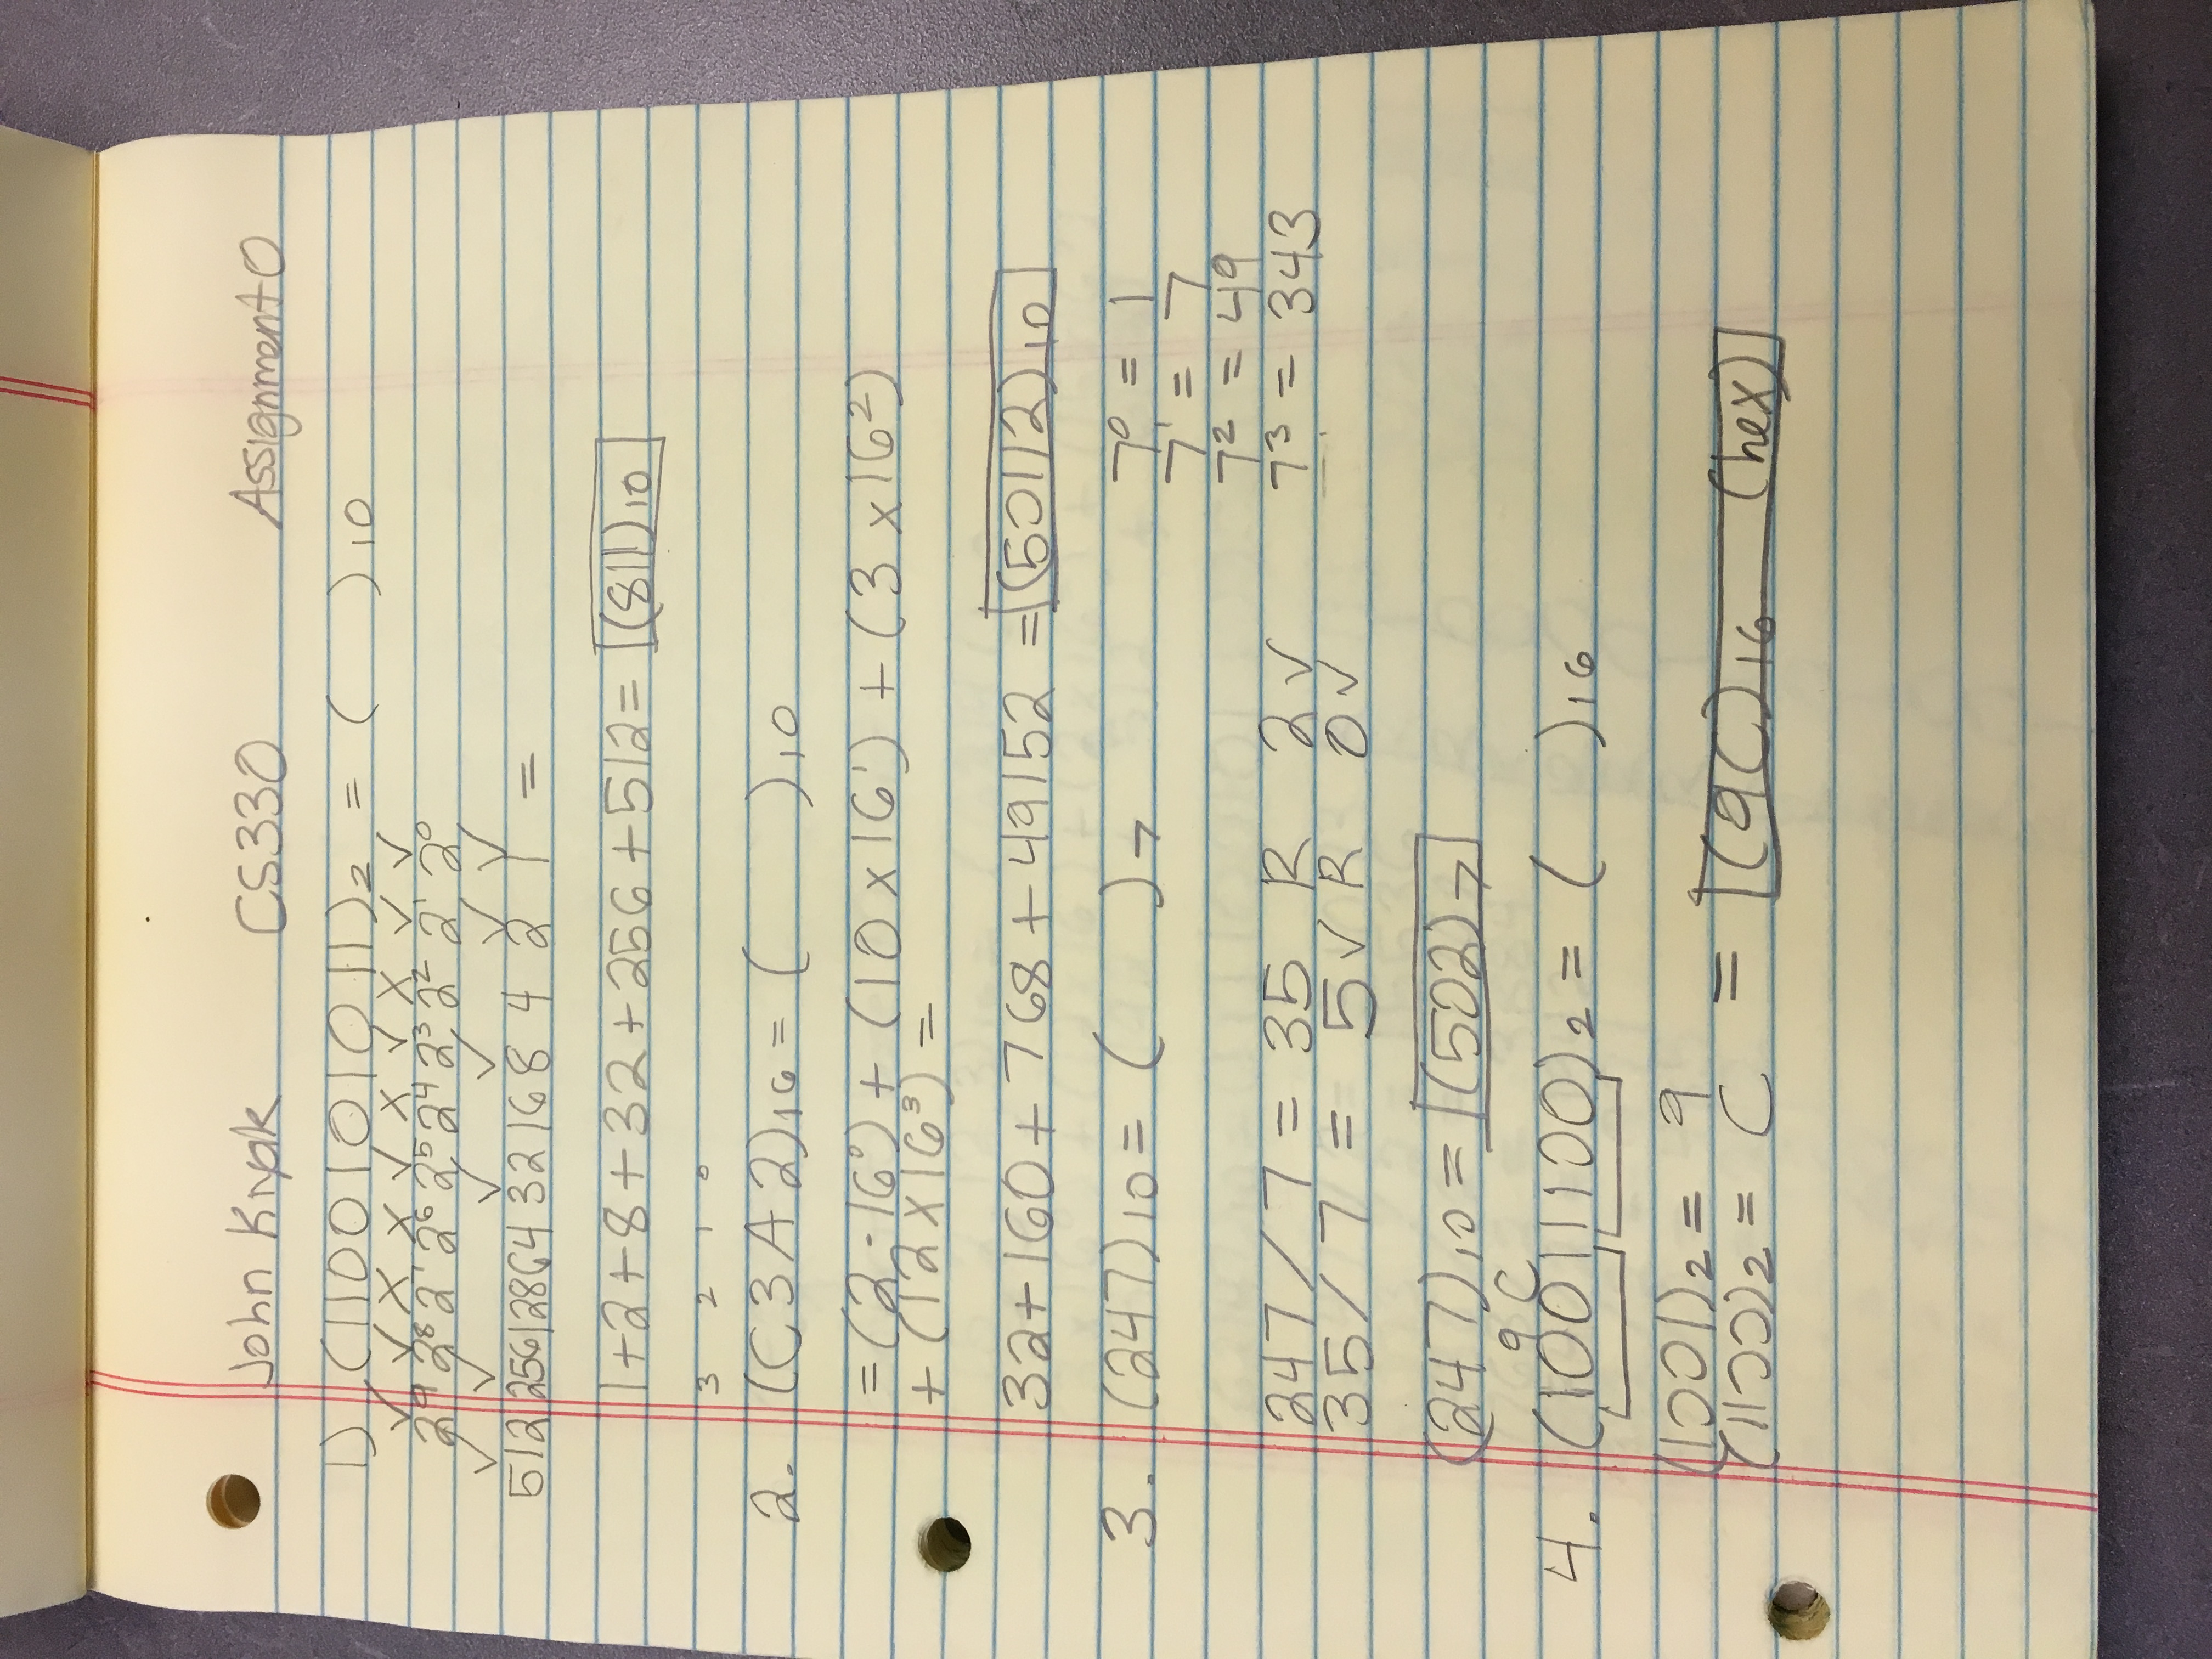 John Kryak CS330 Assignment 0
1) (1100101011)₂ = ( )₁₀
✓ ✓ X X ✓ X ✓ X ✓ ✓
2⁹ 2⁸ 2⁷ 2⁶ 2⁵ 2⁴ 2³ 2² 2¹ 2⁰
✓ ✓ ✓ ✓ ✓ ✓
512 256 128 64 32 16 8 4 2 1 =
1+2+8+32+256+512= (811)₁₀
3 2 1 0
2. (C3A2)₁₆ = ( )₁₀
= (2·16⁰) + (10 x 16¹) + (3 x 16²)
+ (12 x 16³) =
32+160+768+49152 = (50112)₁₀
3. (247)₁₀ = ( )₇ 7⁰ = 1
7¹ = 7
7² = 49
247 / 7 = 35 R 2 ✓ 7³ = 343
35 / 7 = 5 ✓ R 0 ✓
(247)₁₀ = (502)₇
9 C
4. (10011100)₂ = ( )₁₆
(1001)₂ = 9
(1100)₂ = C = (9C)₁₆ (hex)